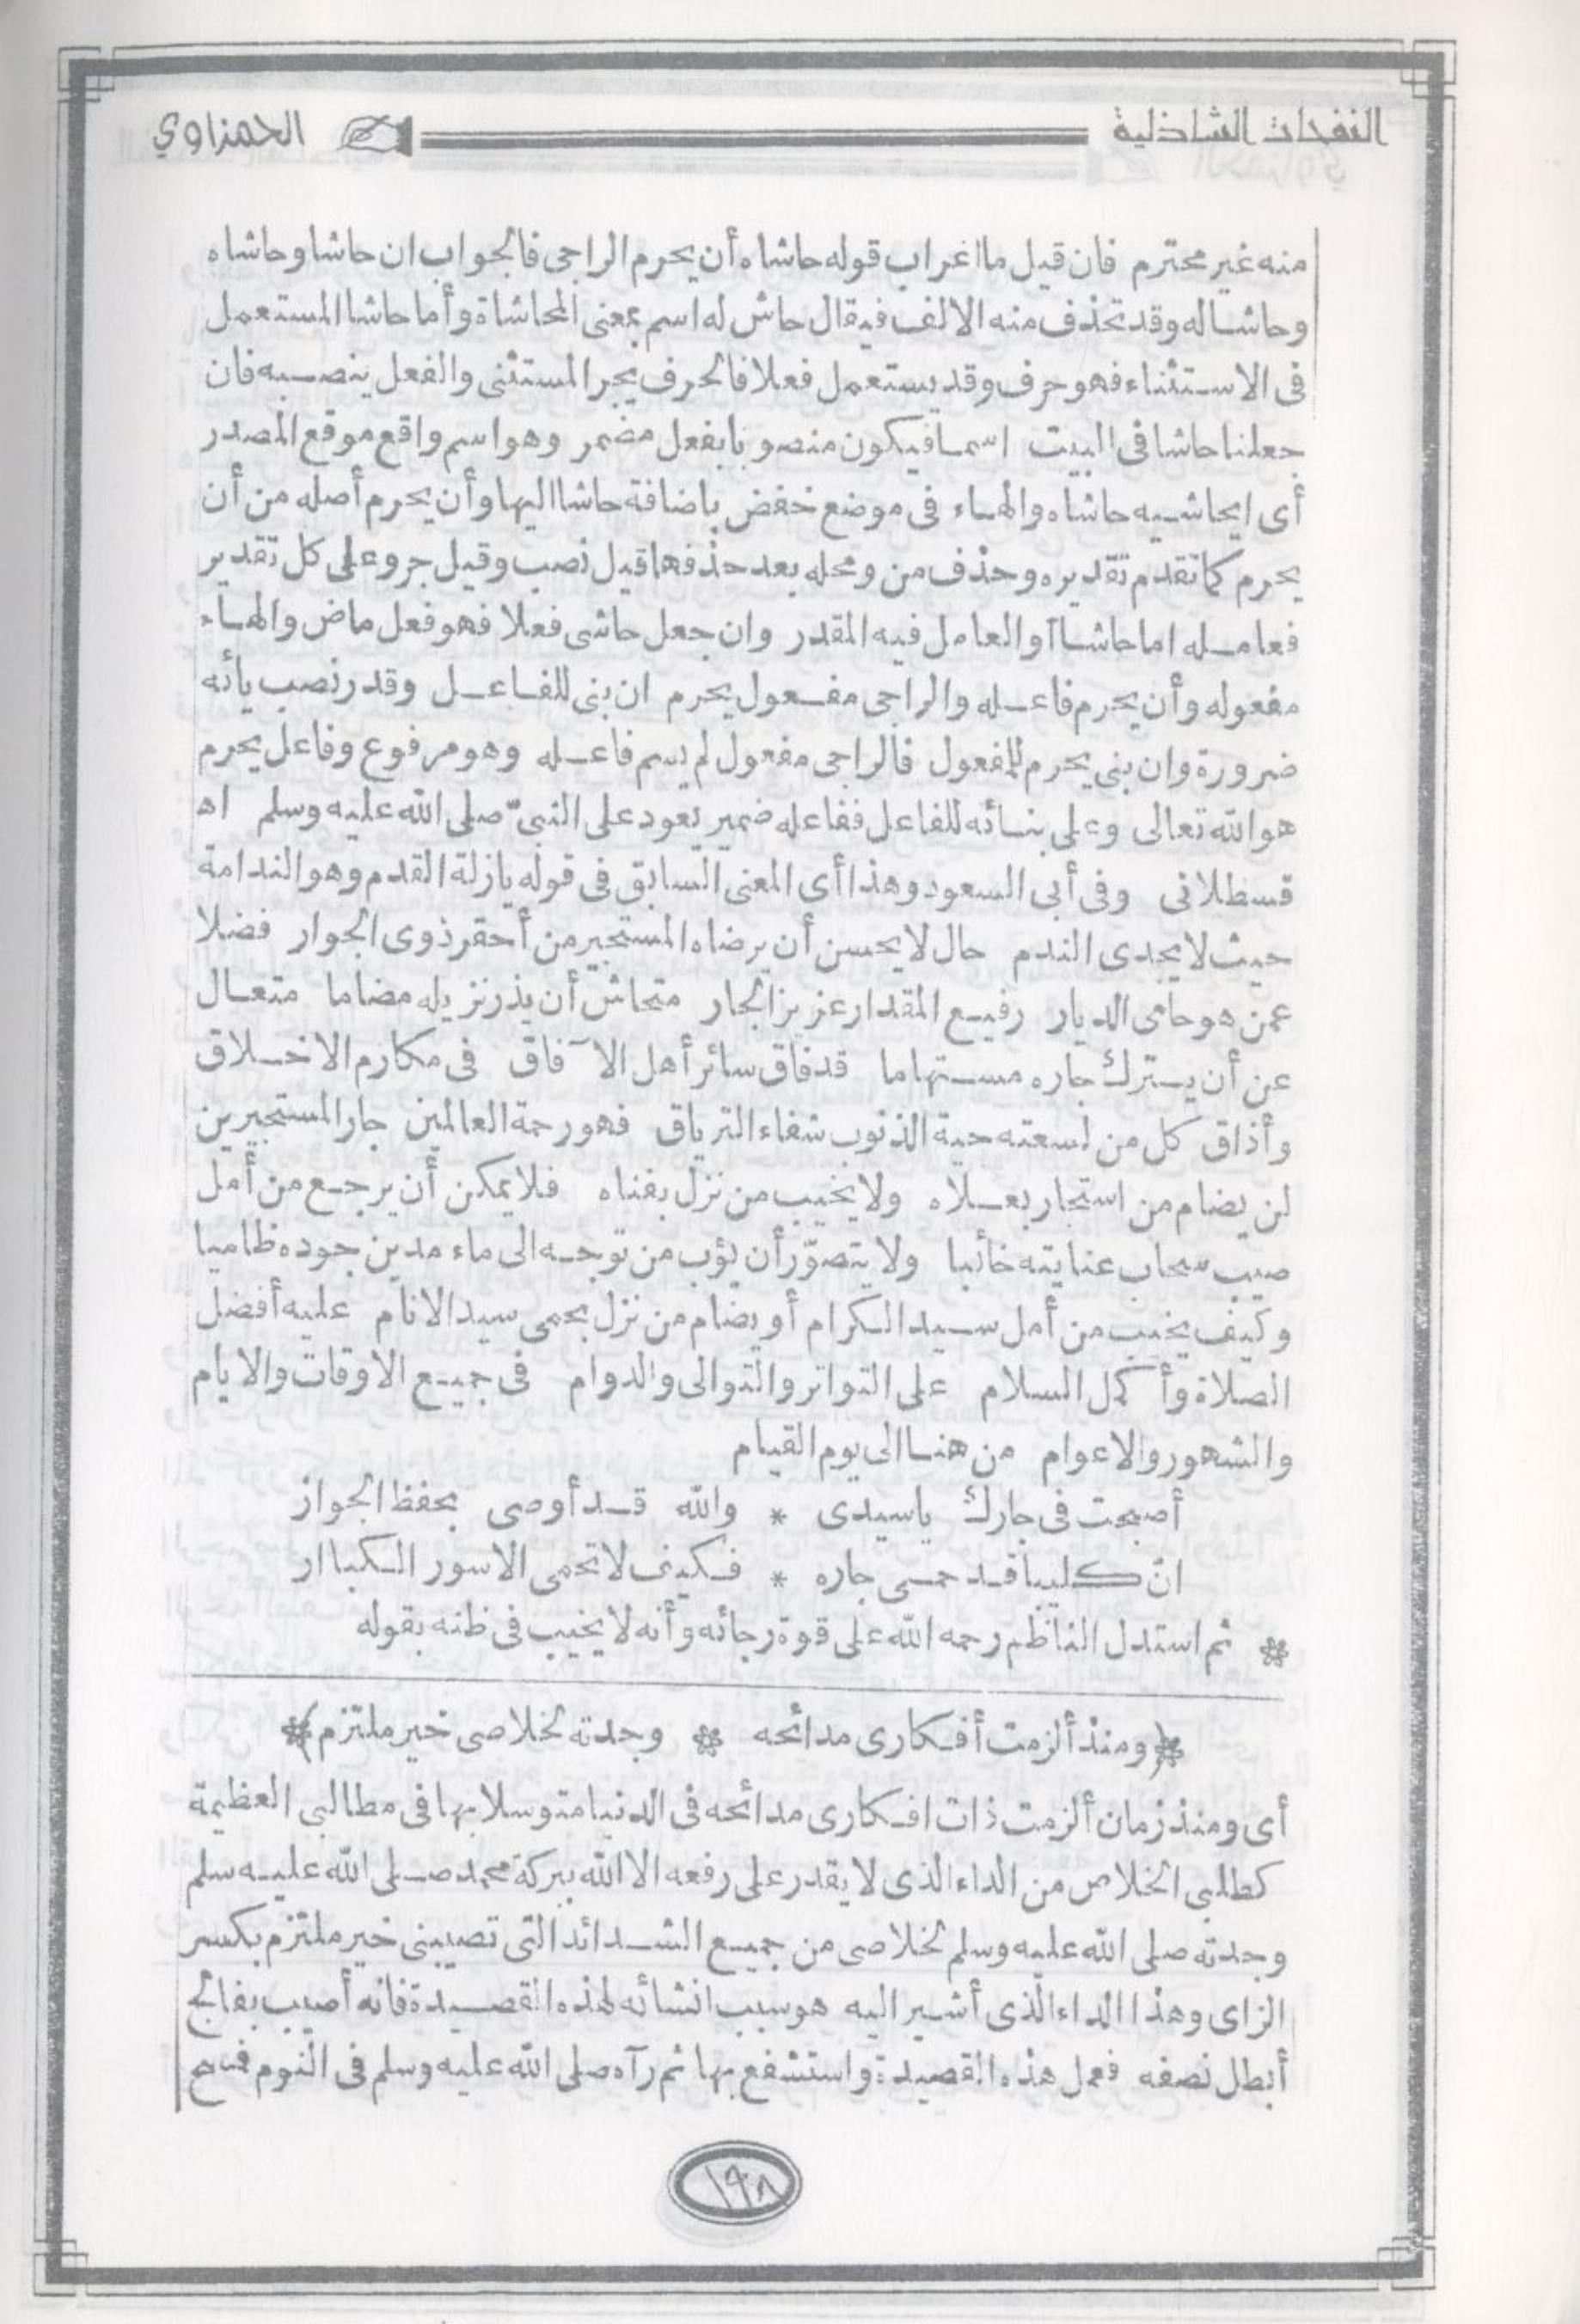 النفحات الشاذلية
الحمزاوي
منه غير محترم فان قيل ما اعراب قوله حاشاه أن يحرم الراجى فالجواب ان حاشا وحاشاه
وحاشاله وقد تحذف منه الالف فيقال حاش له اسم بمعنى المحاشاة وأما حاشا المستعمل
فى الاستثناء فهو حرف وقد يستعمل فعلا فالحرف يجر المستثنى والفعل ينصبه فان
جعلنا حاشا فى البيت اسما فيكون منصوبا بفعل مضمر وهو اسم واقع موقع المصدر
أى ايحاشيه حاشاه والهاء فى موضع خفض باضافة حاشا اليها وأن يحرم أصله من أن
يحرم كما تقدم تقديره وحذف من ومحله بعد حذفها قيل نصب وقيل جر وعلى كل تقدير
فعامله اما حاشا أو العامل فيه المقدر وان جعل حاشى فعلا فهو فعل ماض والهاء
مفعوله وأن يحرم فاعله والراجى مفعول يحرم ان بنى للفاعل وقدر نصب يائه
ضرورة وان بنى يحرم للمفعول فالراجى مفعول لم يسم فاعله وهو مرفوع وفاعل يحرم
هو الله تعالى وعلى بنائه للفاعل ففاعله ضمير يعود على النبىّ صلى الله عليه وسلم اه
قسطلانى وفى أبى السعود وهذا أى المعنى السابق فى قوله يازلة القدم وهو الندامة
حيث لا يجدى الندم حال لا يحسن أن يرضاه المستجير من أحقر ذوى الجوار فضلا
عمن هو حامى الديار رفيع المقدار عزيز الجار متحاش أن يذر نزيله مضاما متعال
عن أن يترك جاره مستهاما قد فاق سائر أهل الآفاق فى مكارم الاخلاق
وأذاق كل من لسعته حية الذنوب شفاء الترياق فهو رحمة العالمين جار المستجيرين
لن يضام من استجار بعلاه ولا يخيب من نزل بفناه فلا يمكن أن يرجع من أمل
صيب سحاب عنايته خائبا ولا يتصوّر أن يؤب من توجه الى ماء مدين جوده ظاميا
وكيف يخيب من أمل سيد الكرام أو يضام من نزل بحمى سيد الانام عليه أفضل
الصلاة وأكمل السلام على التواتر والتوالى والدوام فى جميع الاوقات والايام
والشهور والاعوام من هنا الى يوم القيام
أصبحت فى جارك ياسيدى * والله قد أوصى بحفظ الجواز
انّ كليبا قد حمى جاره * فكيف لا تحمى الاسور الكبا ار
* ثم استدل الناظم رحمه الله على قوة رجائه وأنه لا يخيب فى ظنه بقوله
*(ومنذ ألزمت أفكارى مدائحه * وجدته لخلاصى خير ملتزم)*
أى ومنذ زمان ألزمت ذات افكارى مدائحه فى الدنيا متوسلا بها فى مطالبى العظيمة
كطلبى الخلاص من الداء الذى لا يقدر على رفعه الا الله ببركة محمد صلى الله عليه سلم
وجدته صلى الله عليه وسلم لخلاصى من جميع الشدائد التى تصيبنى خير ملتزم بكسر
الزاى وهذا الداء الذى أشير اليه هو سبب انشائه لهذه القصيدة فانه أصيب بفالج
أبطل نصفه فعمل هذه القصيدة واستشفع بها ثم رآه صلى الله عليه وسلم فى النوم فسح
١٩٨